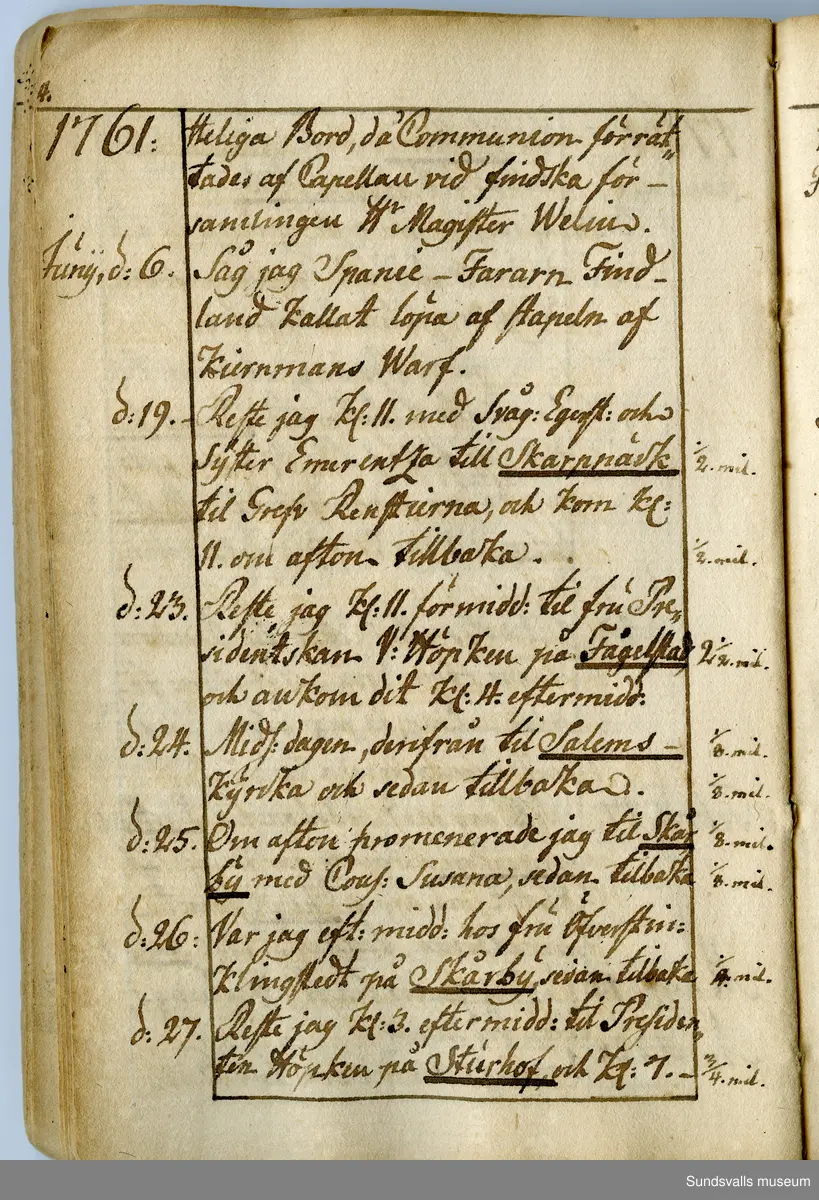 4.
1761: Heliga Bord, då Communion förrät„
tades af Capellan vid findska för-
samlingen Hr Magister Welin.
Junij, d: 6. Såg jag Spanie-Fararn Find-
land kallat löpa af stapeln af
Kiernmans Warf.
d: 19. - Reste jag Kl: 11. med Svåg: Egerst: och
Syster Emerentza till Skarpnäsk 1/2. mil.
til Gref Renstierna, och kom kl:
11. om afton tillbaka. 1/2. mil.
d: 23. Reste jag Kl: 11. förmidd: til fru Pre„
sidentskan V: Höpken på Fågelstad 2 1/2. mil.
och ankom dit Kl: 4. eftermidd:
d: 24. Mids: dagen, derifrån til Salems- 1/8. mil.
Kyrcka och sedan tillbaka. 1/8. mil.
d: 25. Om afton promenerade jag til Skår 1/8. mil.
by med Cous: Susana, sedan tilbaka 1/8. mil.
d: 26: Var jag eft: midd: hos fru Öfverstin:
Klingstedt på Skårby, sedan tilbaka 1/4. mil.
d: 27. Reste jag Kl: 3. eftermidd: til Presiden„
ten Höpken på Sturhof, och Kl: 7. - 3/4. mil.
Sundsvalls museum